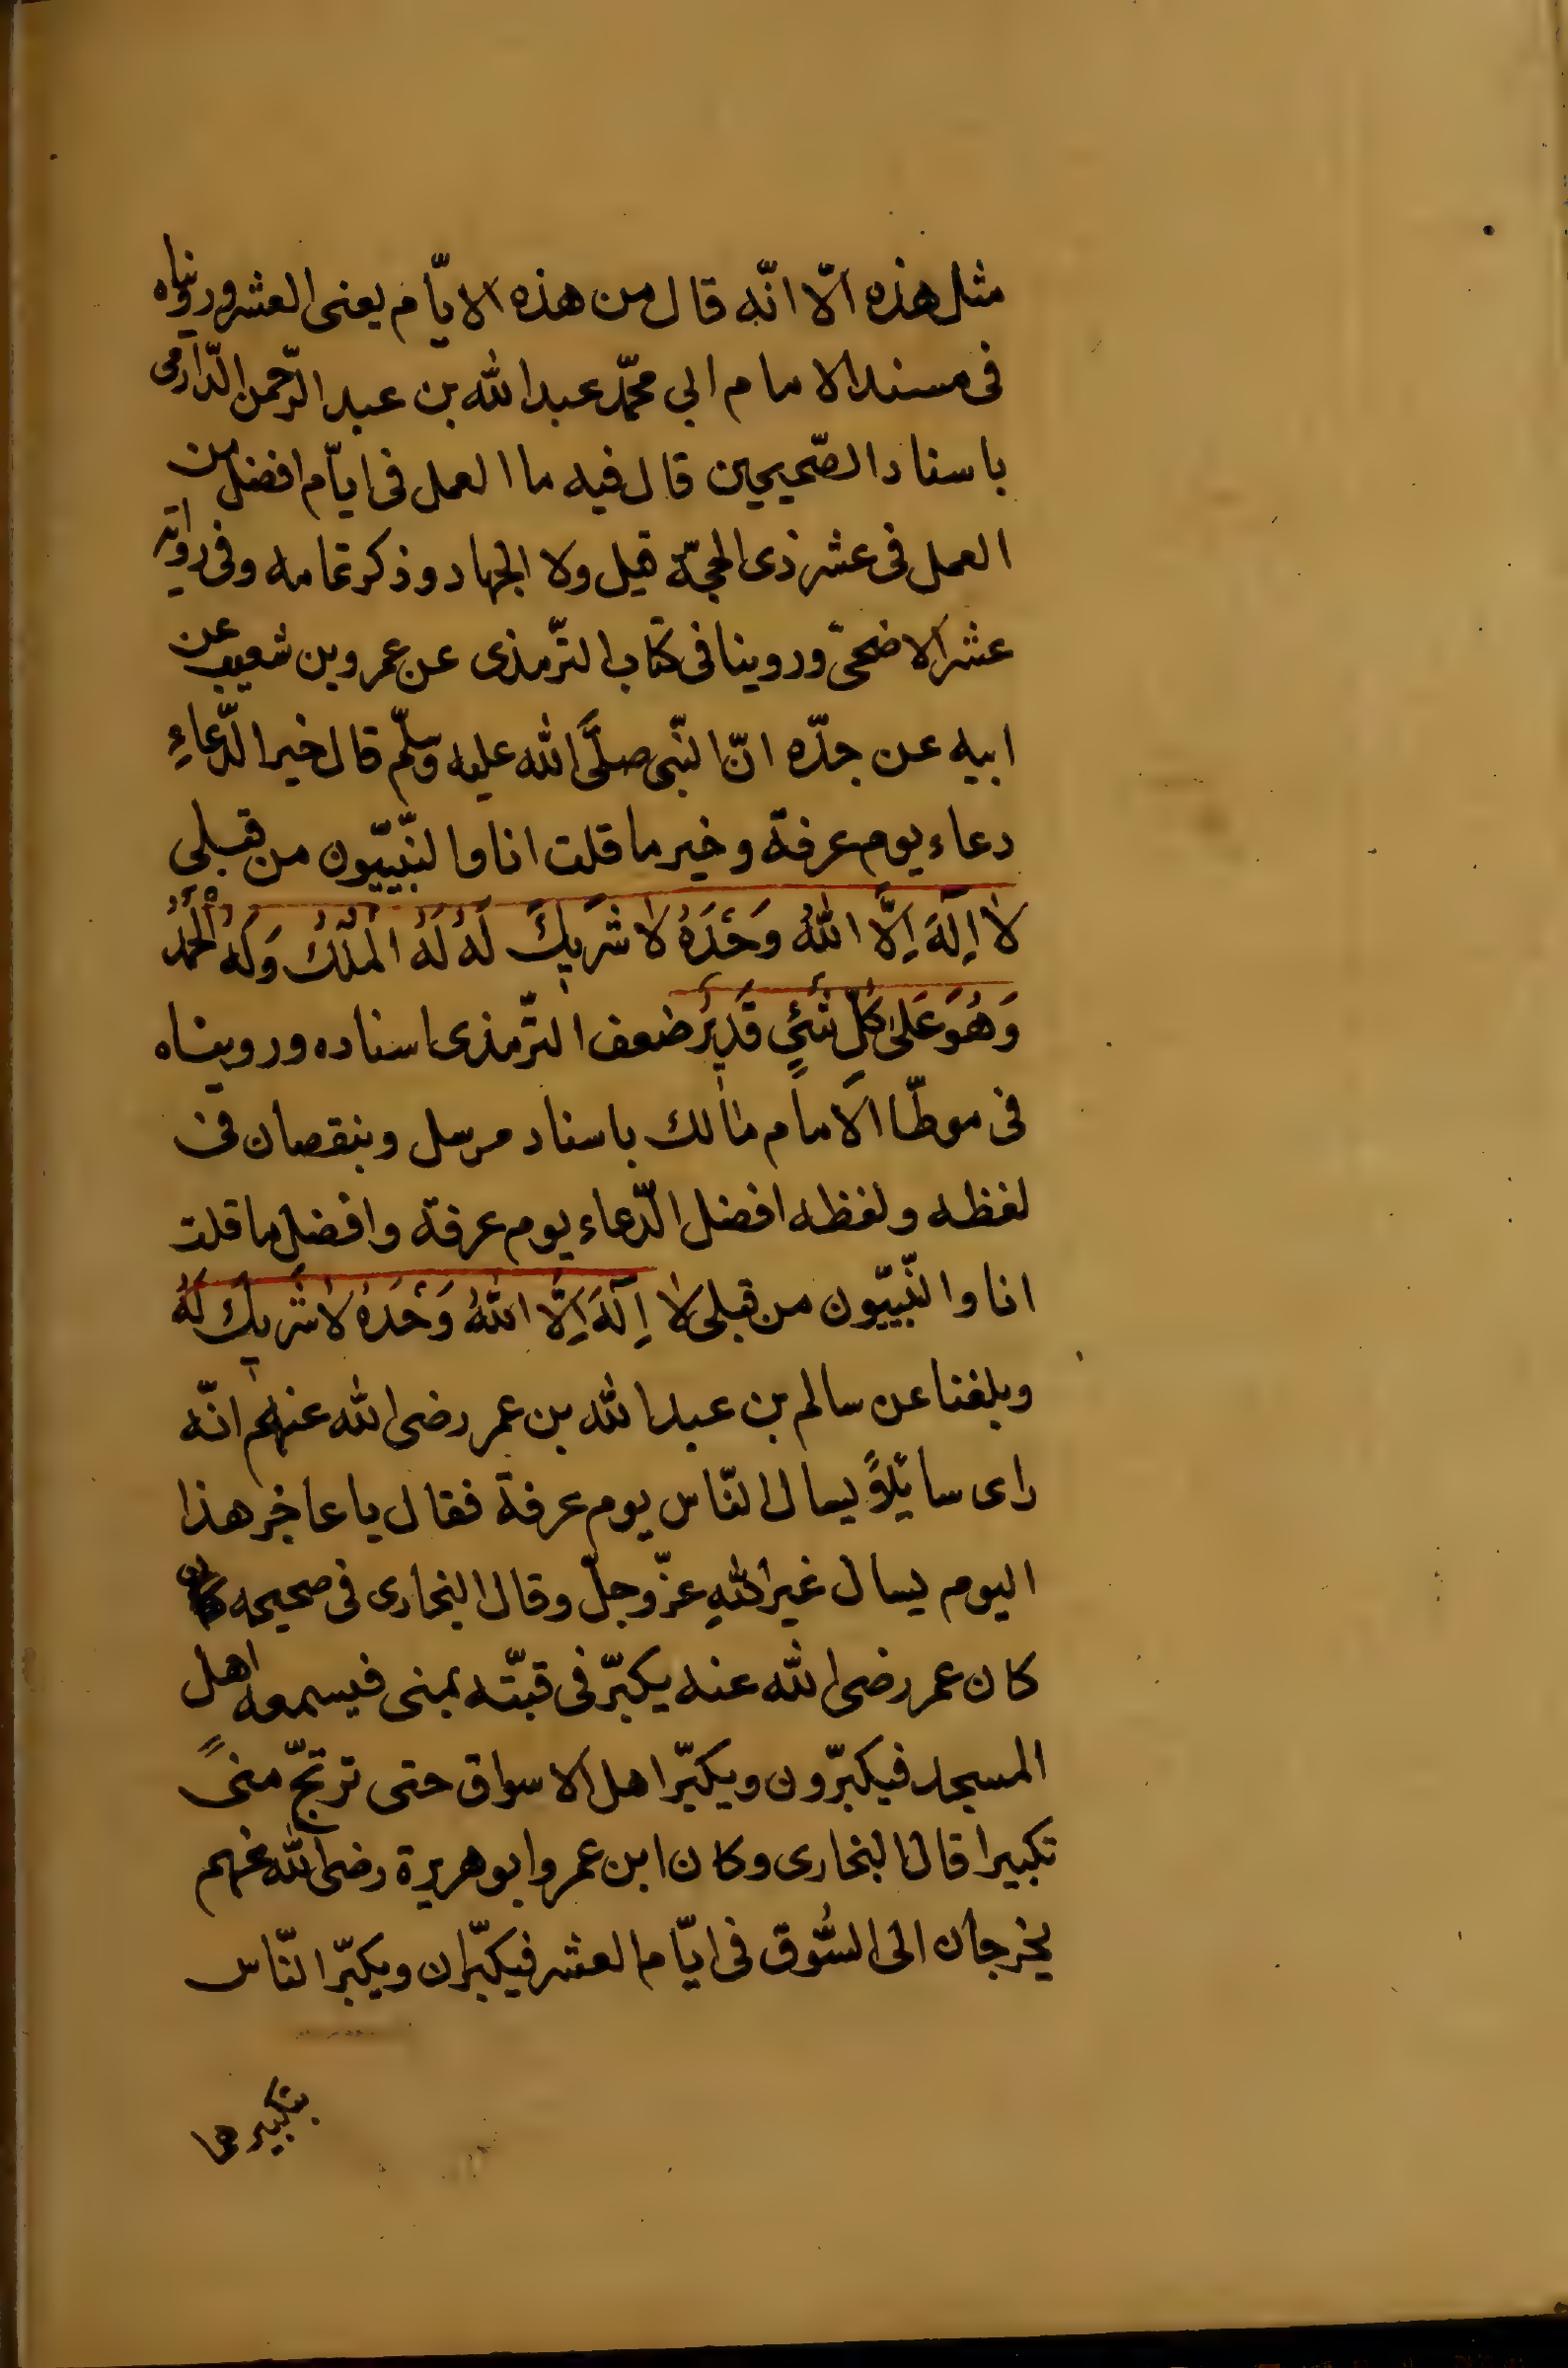 مثل هذه الّا انّه قال من هذه الايّام يعنى العشر ورويناه
فى مسند الامام ابي محمّد عبد الله بن عبد الرّحمن الدّارمى
باسناد الصّحيحين قال فيه ما العمل فى ايّام افضل من
العمل فى عشر ذى الحجّة قيل ولا الجهاد وذكر تمامه وفى رواية
عشر الاضحىّ وروينا فى كتاب التّرمذى عن عمرو بن شعيب عن
ابيه عن جدّه انّ النّبى صلَّى الله عليه وسلّم قال خير الدّعاءِ
دعاء يوم عرفة وخير ما قلت انا والنّبيّون من قبلى
لا اِلَهَ اِلَّا اللهُ وَحْدَهُ لا شَرِيكَ لَهُ لَهُ المُلْكُ وَلَهُ الْحَمْدُ
وَهُوَ عَلى كُلِّ شَئٍ قَدِيرٌ ضعف التّرمذى اسناده ورويناه
فى موطّا الامام مالك باسناد مرسل وبنقصان فى
لفظه ولفظه افضل الدّعاء يوم عرفة وافضل ما قلت
انا والنّبيّون من قبلى لا اِلَهَ اِلَّا اللهُ وَحْدَهُ لا شَرِيكَ لَهُ
وبلغنا عن سالم بن عبد الله بن عمر رضى الله عنهم انّه
راى سايلًا يسال النّاس يوم عرفة فقال يا عاجز هذا
اليوم يسال غير اللهِ عزّ وجلّ وقال البخارى فى صحيحه كان
كان عمر رضى الله عنه يكبّر فى قبّته بمنى فيسمعه اهل
المسجد فيكبّرون ويكبّر اهل الاسواق حتى ترتجّ منىً
تكبيرا قال البخارى وكان ابن عمر وابو هريرة رضى الله عنهم
يخرجان الى السُّوق فى ايّام العشر فيكبّران ويكبّر النّاس
بتكبيرهما